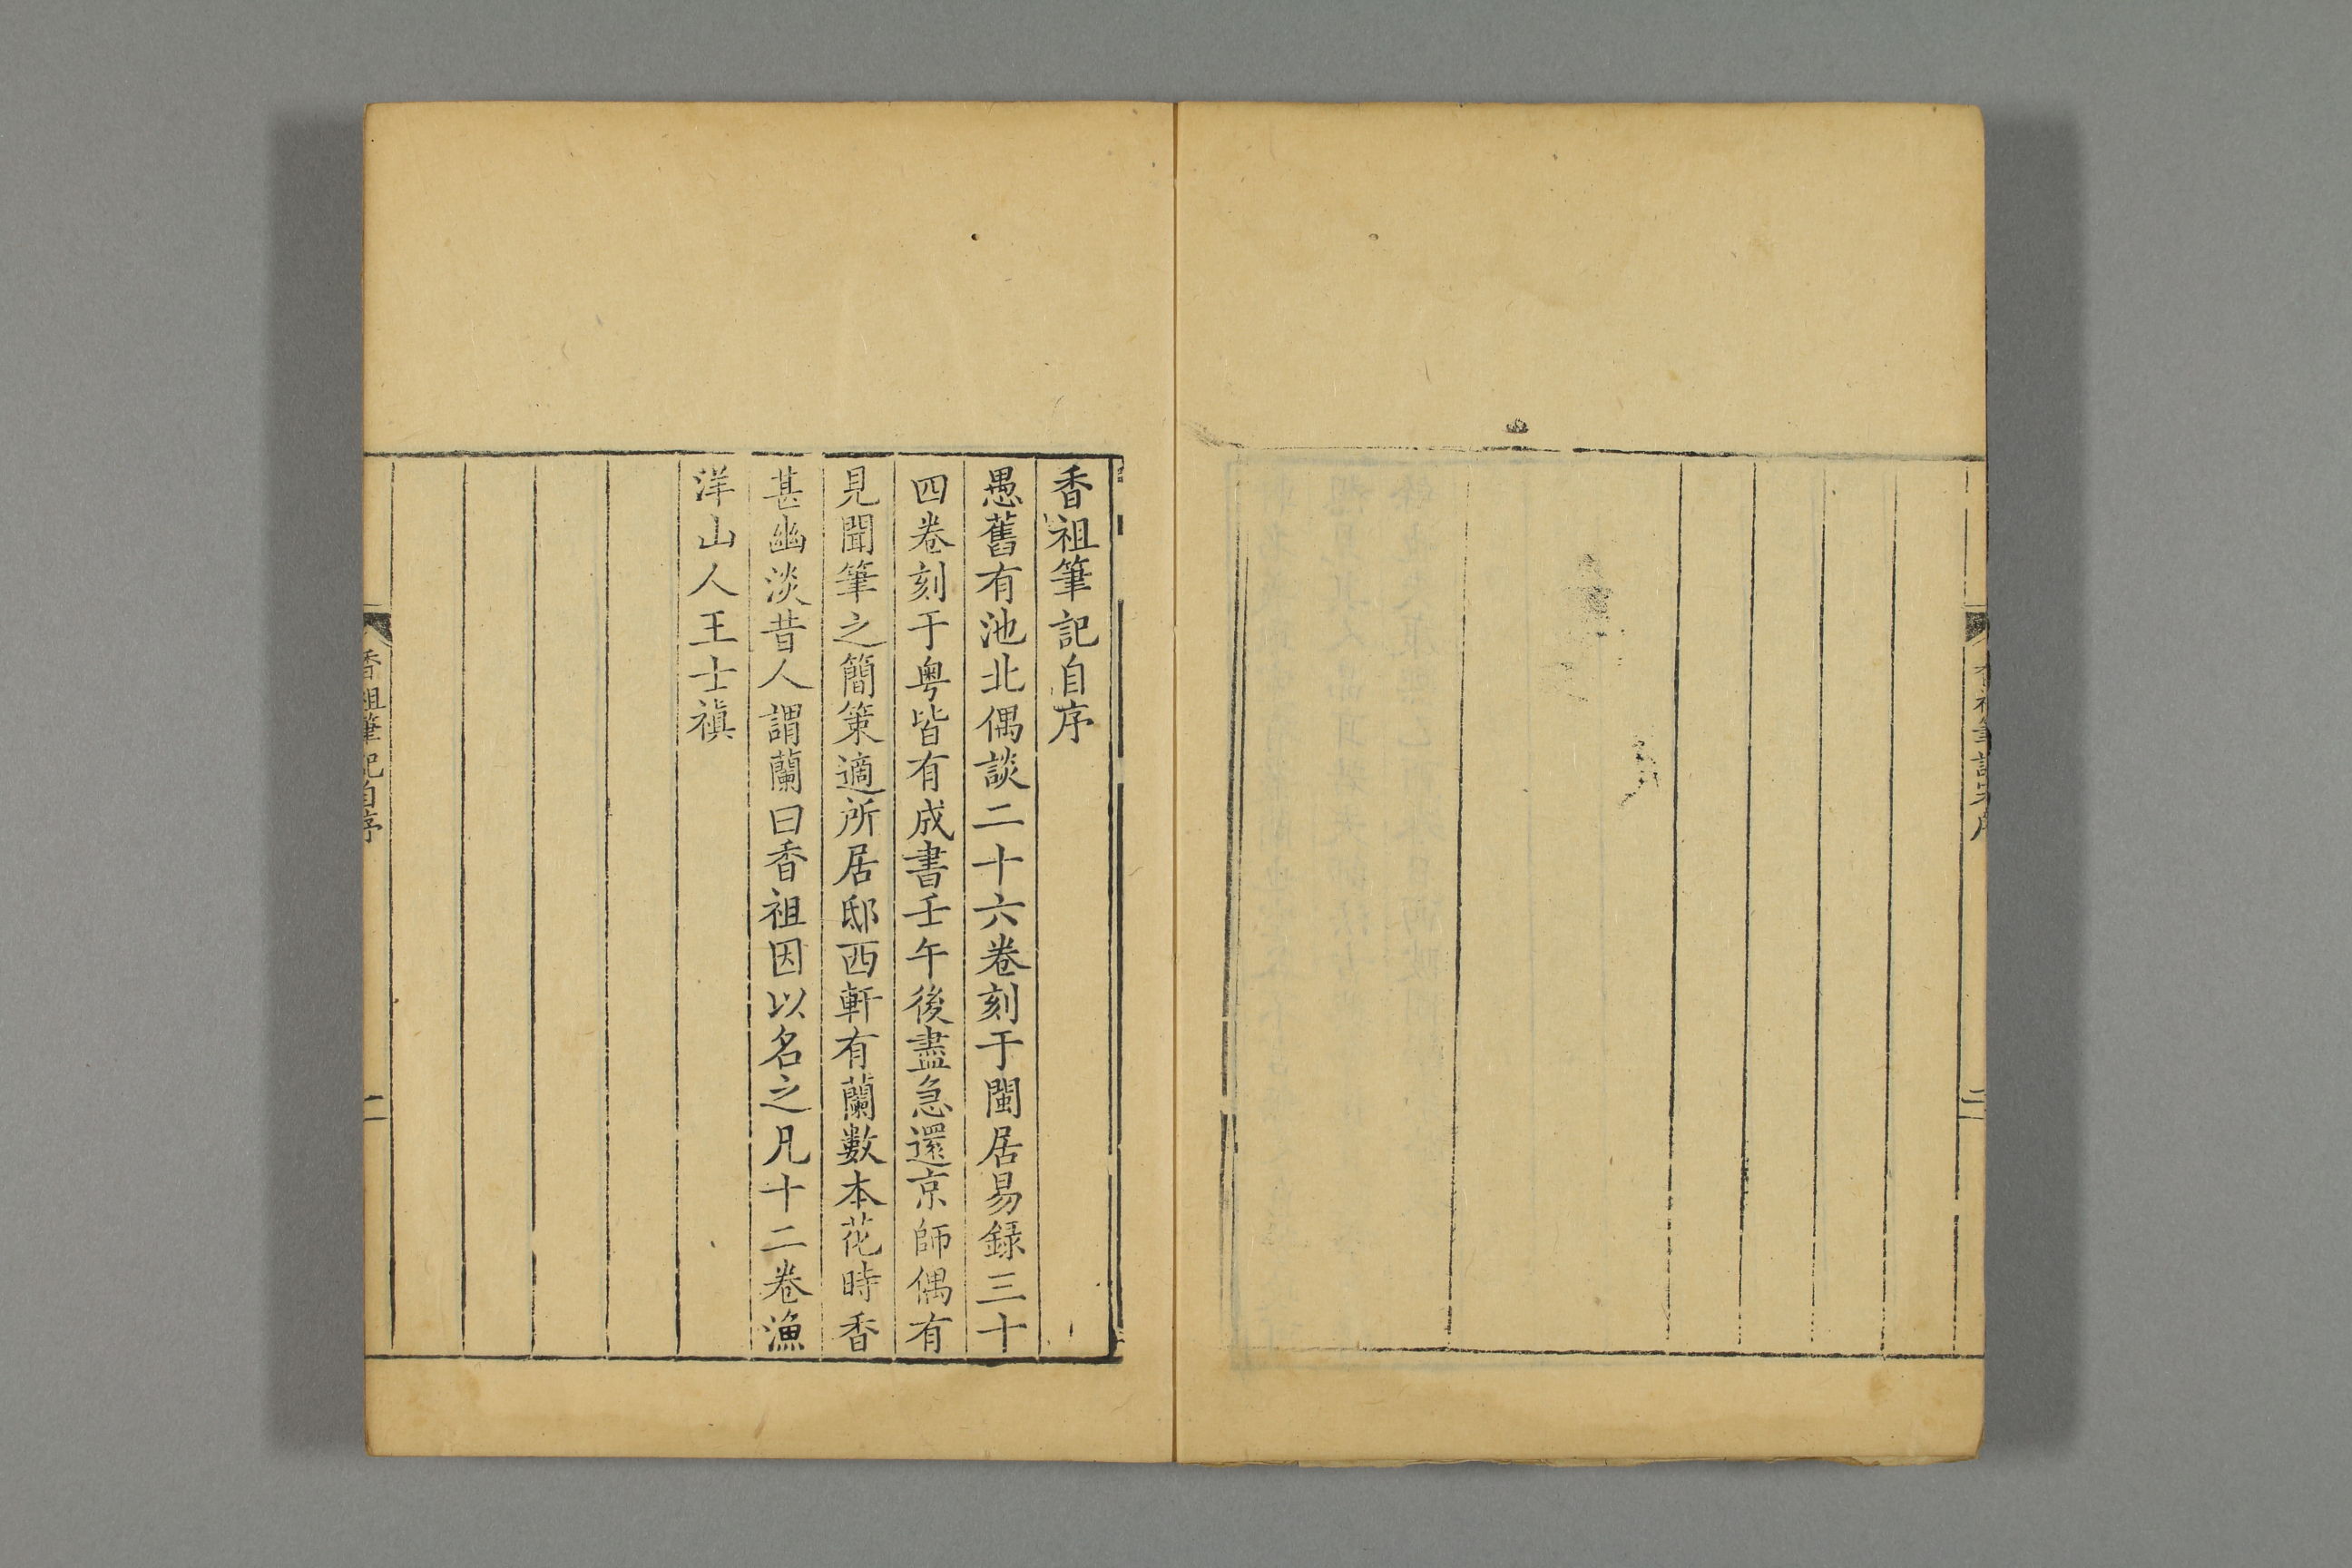 香祖筆記宋序
二
香祖筆記自序
愚舊有池北偶談二十六卷刻于閩居易録三十
四卷刻于粤皆有成書壬午後盡急還京師偶有
見聞筆之簡策適所居邸西軒有蘭數本花時香
甚幽淡昔人謂蘭曰香祖因以名之凡十二卷漁
洋山人王士禛
香祖筆記自序